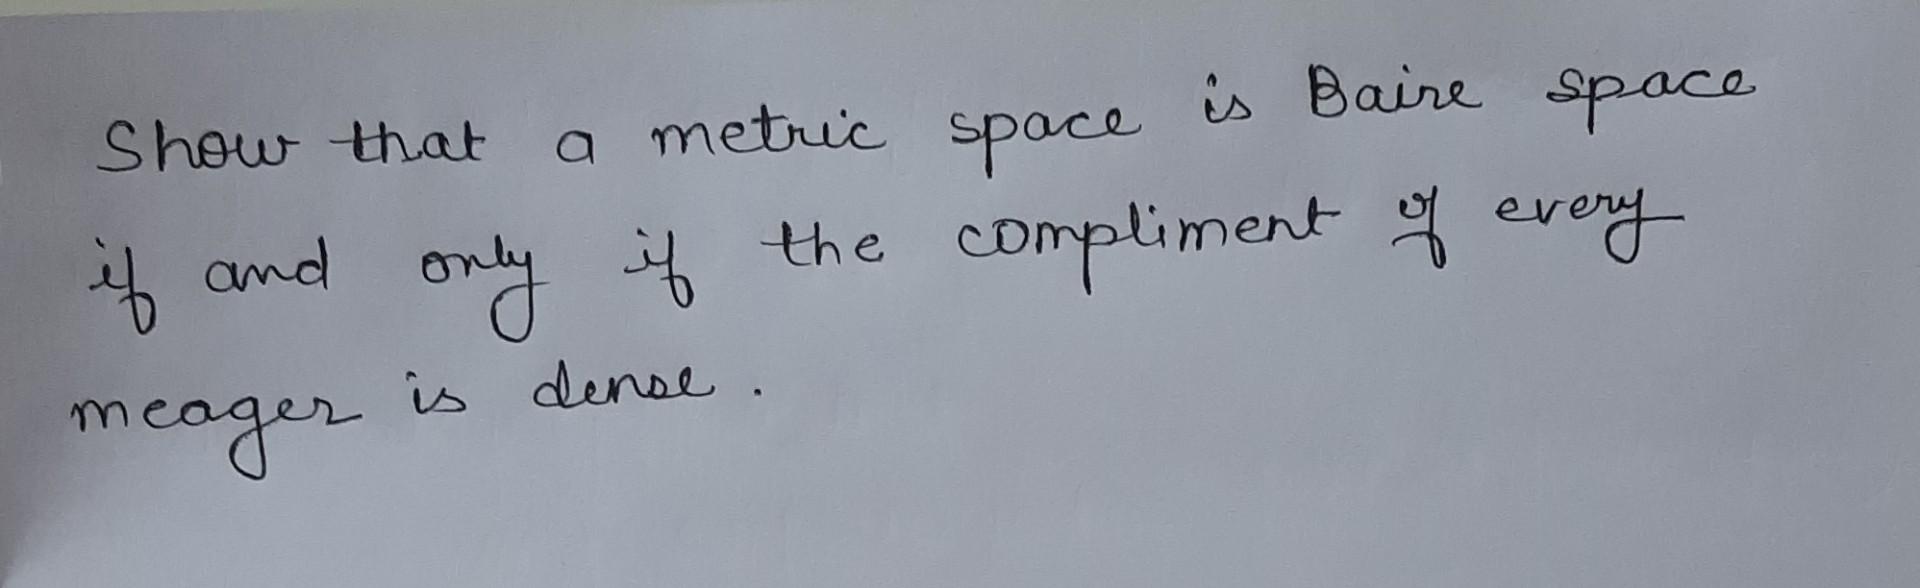 Show that a metric space is Baire space
if and only if the compliment of every
meager is dense.